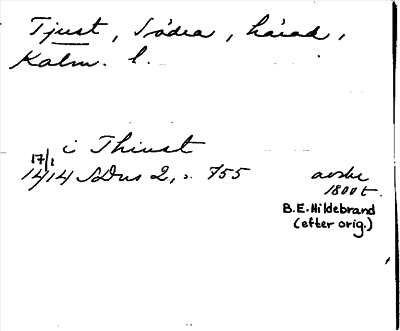 Tjust, Södra, härad,
Kalm. l.
i Thiust
17/1
1414 SDns 2, s. 755
avskr
1800 t.
B.E. Hildebrand
(efter orig.)